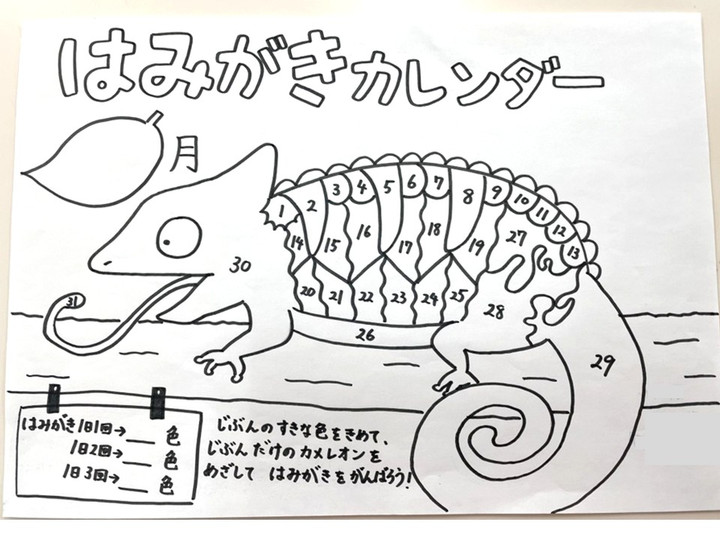 はみがきカレンダー
月
1 2 3 4 5 6 7 8 9 10 11 12 13
14 15 16 17 18 19 27
20 21 22 23 24 25 28
26
29
30
31
はみがき1日1回→__色
1日2回→__色
1日3回→__色
じぶんのすきな色をきめて、
じぶんだけのカメレオンを
めざして はみがきをがんばろう!